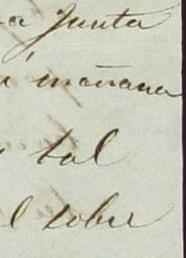 a Junta
mañana
tal
l sobre